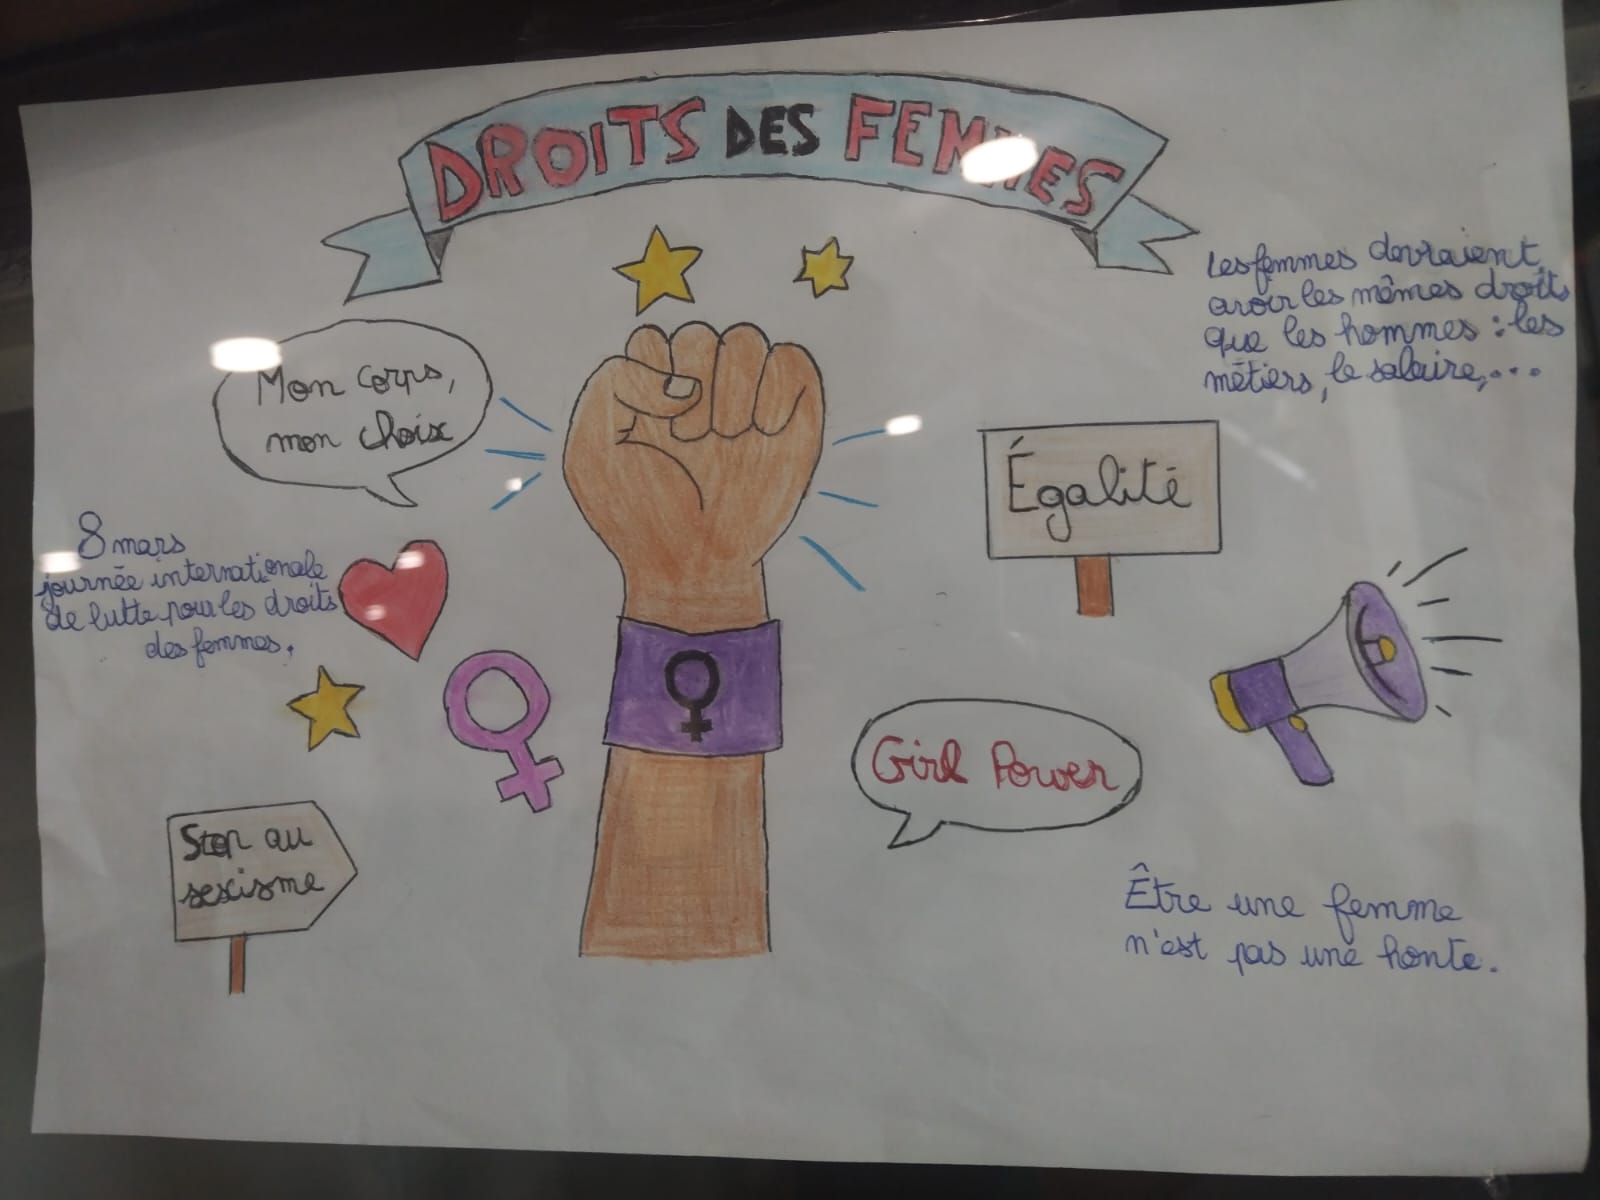 DROITS DES FEMMES
Les femmes devraient
avoir les mêmes droits
que les hommes : les
métiers, le salaire,...
Mon corps,
mon choix
Égalité
8 mars
journée internationale
de lutte pour les droits
des femmes.
Girl Power
Stop au
sexisme
Être une femme
n'est pas une honte.